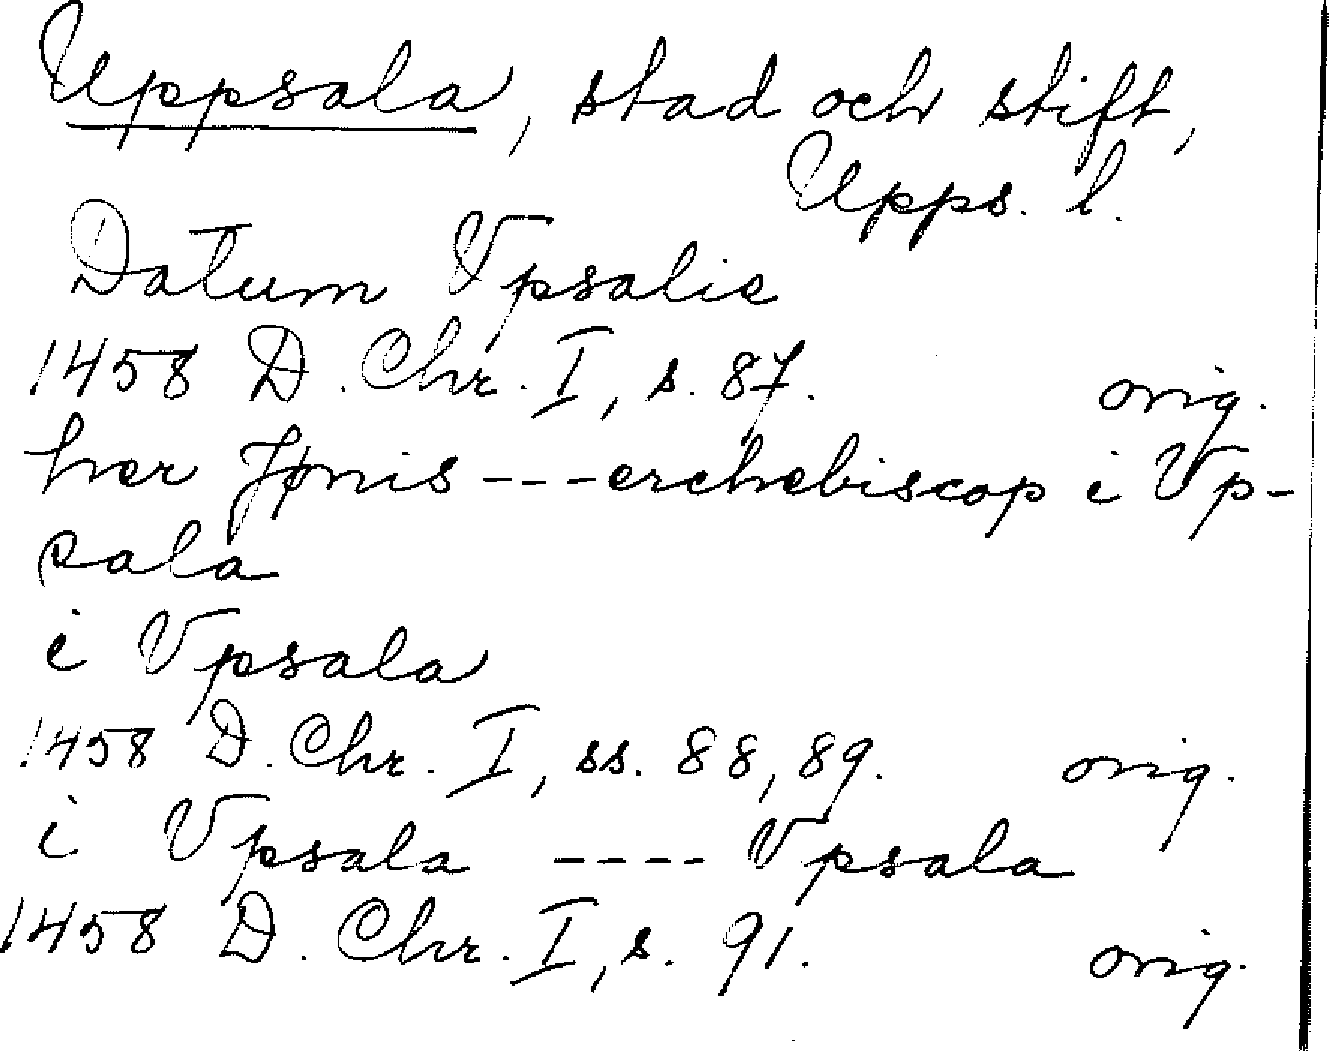 Uppsala, stad och stift,
Upps. l.
Datum Vpsalie
1458 D. Chr. I, s. 87. orig.
her Jønis ---erchebiscop i Vp-
sala
i Vpsala
1458 D. Chr. I, ss. 88, 89. orig.
i Vpsala ---- Vpsala
1458 D. Chr. I, s. 91. orig.